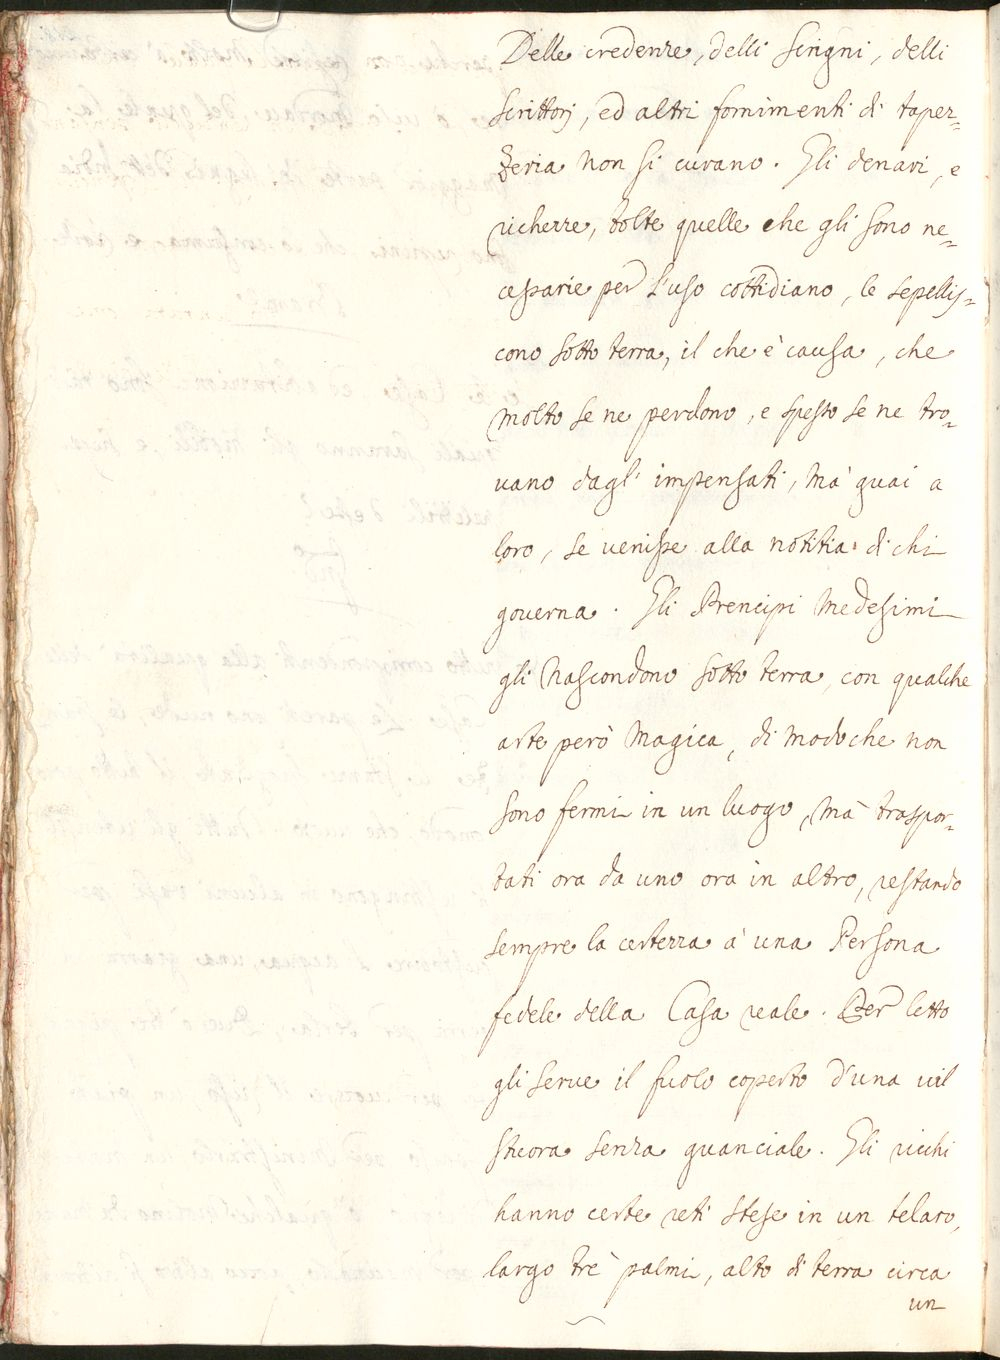 Delle credenze, delli scrigni, delli
scrittorj, ed altri fornimenti di taper-
zeria non si curano. Gli denari, e
richezze, tolte quelle che gli sono ne-
cessarie per l'uso cottidiano, le sepellis-
cono sotto terra, il che è causa, che
molto se ne perdono, e spesso se ne tro-
vano dagl' impensati, mà guai a
loro, se venisse alla notitia di chi
governa. Gli Prencipi medesimi
gli nascondono sotto terra, con qualche
arte però magica, di modo che non
sono fermi in un luogo, mà traspor-
tati ora da uno ora in altro, restando
sempre la certezza à una Persona
fedele della Casa reale. Per letto
gli serve il suolo coperto d'una vil
stuora senza guanciale. Gli ricchi
hanno certe reti stese in un telaro,
largo trè palmi, alto di terra circa
un